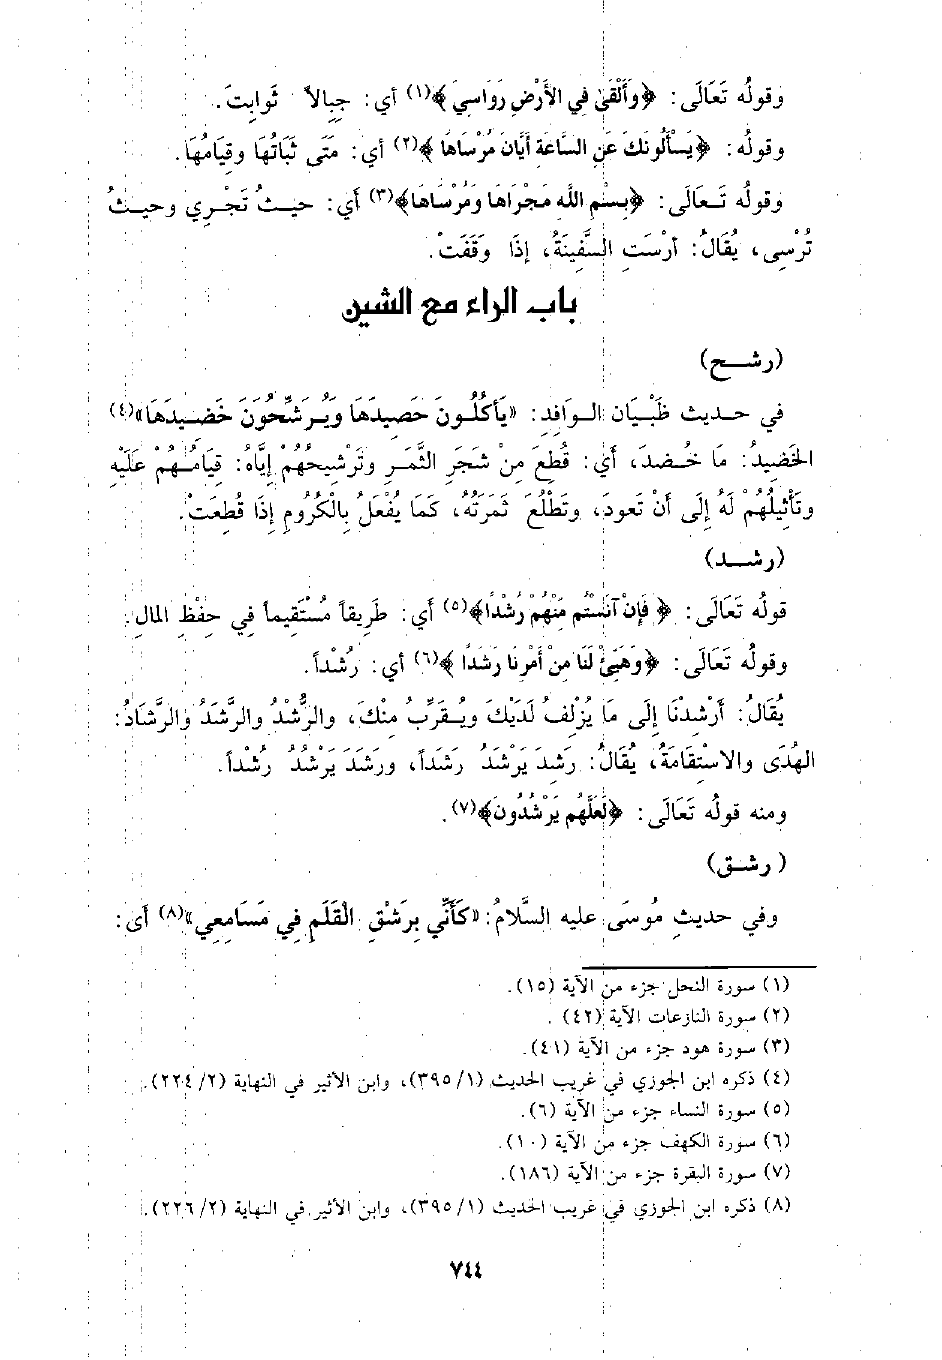 وقولُه تَعَالَى: ﴿وَأَلْقَىٰ فِي الأَرْضِ رَوَاسِيَ﴾(١) أي: جِبالاً ثَوابِتَ.
وقولُه: ﴿يَسْأَلُونَكَ عَنِ السَّاعَةِ أَيَّانَ مُرْسَاهَا﴾(٢) أي: مَتَى ثَبَاتُهَا وقِيَامُهَا.
وقولُه تَـعَالَى: ﴿بِسْمِ اللَّهِ مَجْرَاهَا وَمُرْسَاهَا﴾(٣) أي: حيثُ تَجْرِي وحيثُ
تُرْسِى، يُقَالُ: أرْسَتِ السَّفِينَةُ، إذَا وَقَفَتْ.
باب الراء مع الشين
(رشـح)
في حـديث ظَبْيَان الـوَافِدِ: «يَأكُلُـونَ حَصِيدَهَا ويُـرَشِّحُونَ خَضِيـدَهَا»(٤)
الخَضِيدُ: مَا خُـضِدَ، أَيْ: قُطِعَ مِنْ شَجَرِ الثَّمَرِ وتَرْشِيحُهُمْ إيَّاهُ: قِيَامُـهُمْ عَلَيْهِ
وتَأثِيلُهُمْ لَهُ إلَى أنْ تَعودَ، وتَطْلُعَ ثَمَرَتُهُ، كَمَا يُفْعَلُ بِالْكُرُومِ إذَا قُطِعَتْ.
(رشـد)
قولُه تَعَالَى: ﴿فَإِنْ آنَسْتُم مِّنْهُمْ رُشْدًا﴾(٥) أي: طَرِيقاً مُسْتَقِيماً في حِفْظِ المالِ.
وقولُه تَعَالَى: ﴿وَهَيِّئْ لَنَا مِنْ أَمْرِنَا رَشَدًا﴾(٦) أي: رُشْداً.
يُقَالُ: أَرْشِدْنَا إلَى مَا يُزْلِفُ لَدَيْكَ ويُـقَرِّبُ مِنْكَ، والرُّشْدُ والرَّشَدُ والرَّشَادُ:
الهُدَى والاسْتِقَامَةُ، يُقَالُ: رَشِدَ يَرْشَدُ رَشَداً، ورَشَدَ يَرْشُدُ رُشْداً.
ومنه قولُه تَعَالَى: ﴿لَعَلَّهُم يَرْشُدُونَ﴾(٧).
(رشـق)
وفي حديثِ مُوسَى عليه السَّلامُ: «كَأنِّي بِرَشْقِ الْقَلَمِ فِي مَسَامِعِي»(٨) أى:
(١) سورة النحل جزء من الآية (١٥).
(٢) سورة النازعات الآية (٤٢) .
(٣) سورة هود جزء من الآية (٤١).
(٤) ذكره ابن الجوزي في غريب الحديث (١/ ٣٩٥)، وابن الأثير في النهاية (٢/ ٢٢٤).
(٥) سورة النساء جزء من الآية (٦).
(٦) سورة الكهف جزء من الآية (١٠).
(٧) سورة البقرة جزء من الآية (١٨٦).
(٨) ذكره ابن الجوزي في غريب الحديث (١/ ٣٩٥)، وابن الأثير في النهاية (٢/ ٢٢٦).
٧٤٤